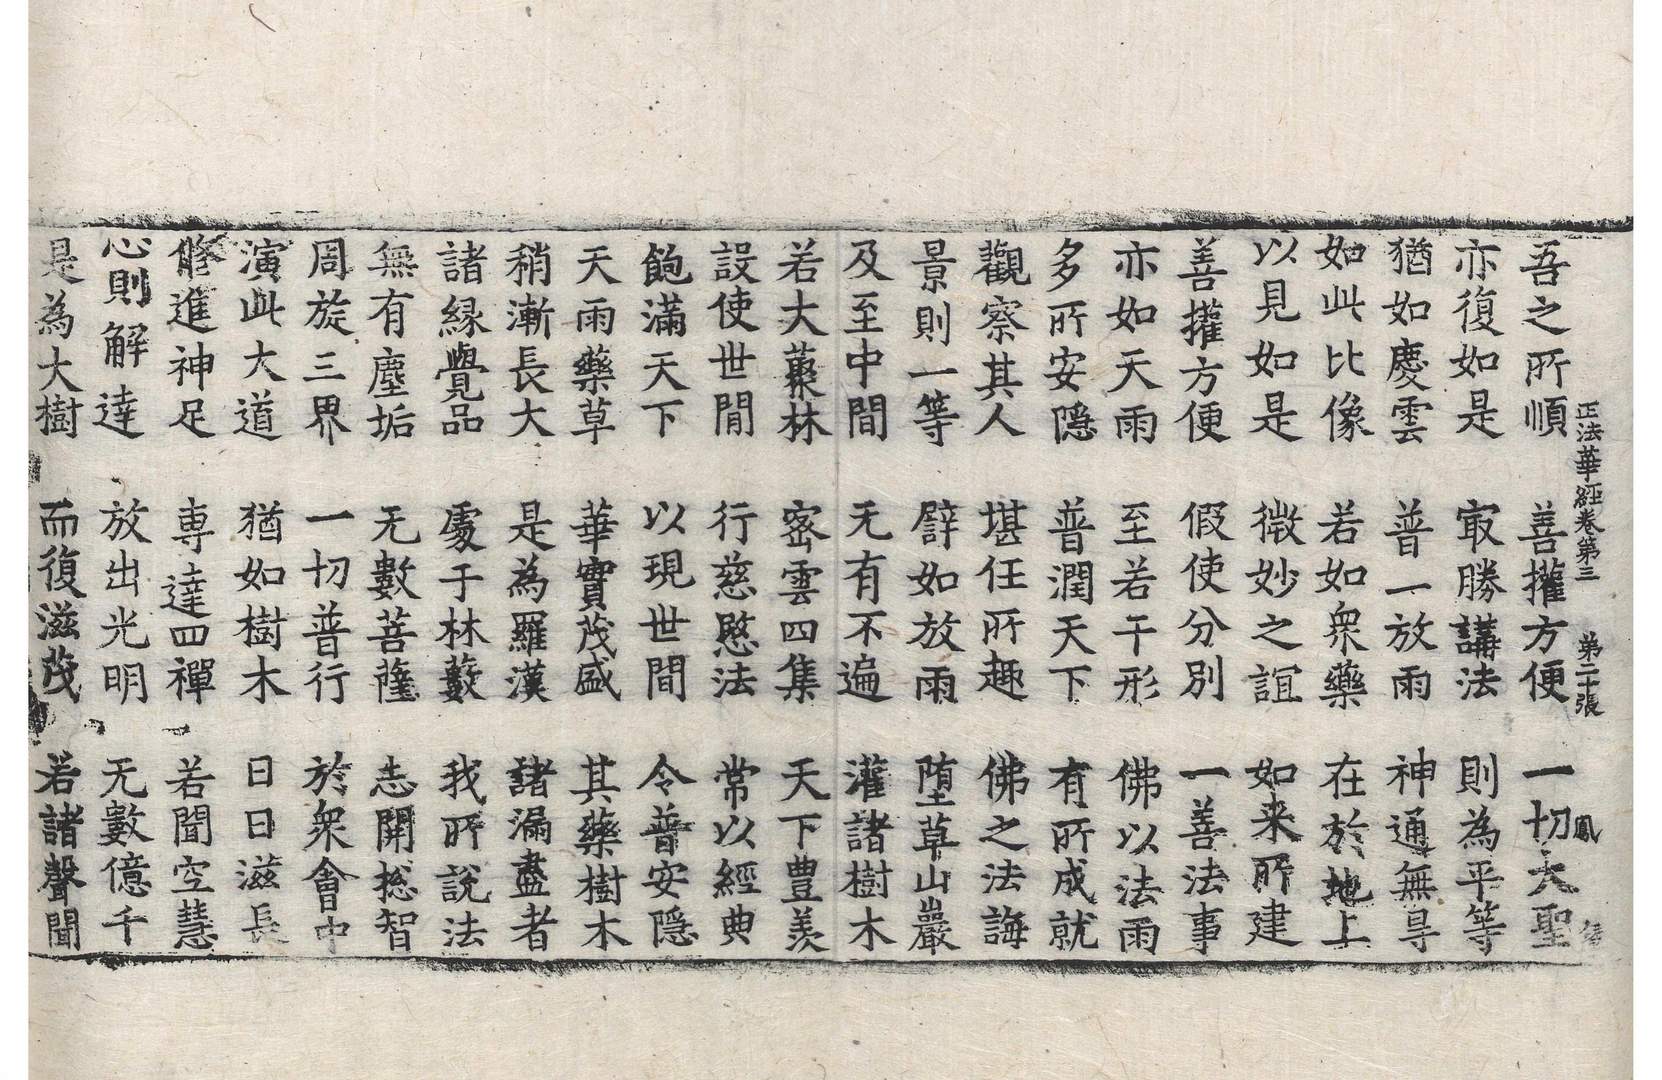 正法華經卷第三 第二十張 鳳
吾之所順 善權方便 一切大聖
亦復如是 㝡勝講法 則為平等
猶如慶雲 普一放雨 神通無㝵
如此比像 若如衆藥 在於地上
以見如是 微妙之誼 如来所建
善權方便 假使分別 一善法事
亦如天雨 至若干形 佛以法雨
多所安隱 普潤天下 有所成就
觀察其人 堪任所趣 佛之法誨
景則一等 譬如放雨 墮草山巖
及至中間 无有不遍 灌諸樹木
若大藂林 密雲四集 天下豊羨
設使世間 行慈愍法 常以經典
飽滿天下 以現世間 令普安隱
天雨藥草 華實茂盛 其藥樹木
稍漸長大 是為羅漢 諸漏盡者
諸縁覺品 處于林藪 我所說法
無有塵垢 无數菩薩 志開揔智
周旋三界 一切普行 於衆會中
演此大道 猶如樹木 日日滋長
修進神足 專達四禪 若聞空慧
心則解達 放出光明 无數億千
是為大樹 而復滋茂 若諸聲聞